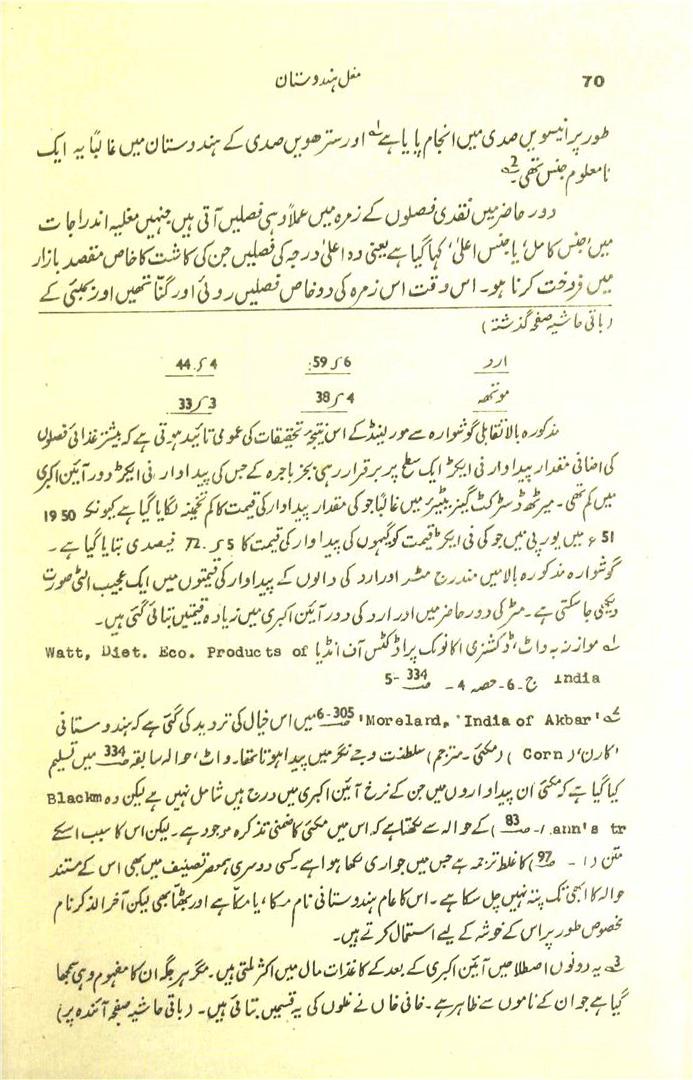 70 مغل ہندوستان
طور پر انیسویں صدی میں انجام پایا ہے لہ اور سترھویں صدی کے ہندوستان میں غالباً یہ ایک
نامعلوم جنس تھی۔ 2ہ
دور حاضر میں نقدی فصلوں کے زمرہ میں عملاً وہی فصلیں آتی ہیں جنہیں مغلیہ اندراجات
میں 'جنس کامل' یا 'جنس اعلیٰ' کہا گیا ہے یعنی وہ اعلیٰ درجہ کی فصلیں جن کی کاشت کا خاص مقصد بازار
میں فروخت کرنا ہو۔ اس وقت اس زمرہ کی دو خاص فصلیں روئی اور گنّا تھیں اور بمبئی کے
(باقی حاشیہ صفحہ گذشتہ)
ارد 6 کر 59: 4 کر 44.
موٹھہ 4 کر 38 3 کر 33
مذکورہ بالا تقابلی گوشوارہ سے مورلینڈ کے اس نتیجۂ تحقیقات کی عمومی تائید ہوتی ہے کہ بیشتر غذائی فصلوں
کی اضافی مقدار پیداوار فی ایکڑ ایک سطح پر برقرار رہی بجز باجرہ کے جس کی پیداوار فی ایکڑ دور آئین اکبری
میں کم تھی۔ میرٹھ ڈسٹرکٹ گیزیٹیئر میں غالباً جو کی مقدار پیداوار کی قیمت کا کم تخمینہ لگایا گیا ہے کیونکہ 1950
51 ء میں یو پی میں جو کی فی ایکڑ قیمت کو گیہوں کی پیداوار کی قیمت کا 5 کر 72. فیصدی بتایا گیا ہے۔
گوشوارہ مذکورہ بالا میں مندرج مٹر اور ارد کی دالوں کے پیداوار کی قیمتوں میں ایک عجیب الٹی صورت
دیکھی جا سکتی ہے۔ مٹر کی دور حاضر میں اور ارد کی دور آئین اکبری میں زیادہ قیمتیں بتائی گئی ہیں۔
لہ موازنہ بہ واٹ، ڈکشنری اکانومک پراڈکٹس آف انڈیا Watt, Diet. Eco. Products of
India ج۔6۔ حصہ 4 ۔ صـ 334 -5
2ہ Moreland, 'India of Akbar' صـ 305-6 میں اس خیال کی تردید کی گئی ہے کہ ہندوستانی
'کارن' (Corn) (مکئی۔ مترجم) سلطنت وجے نگر میں پیدا ہوتا تھا۔ واٹ، حوالہ سابقہ صـ 334 میں تسلیم
کیا گیا ہے کہ مکئی ان پیداواروں میں جن کے نرخ آئین اکبری میں درج ہیں شامل نہیں ہے لیکن وہ Blackm
ann's tr. (1- صـ 83) کے حوالہ سے لکھتا ہے کہ اس میں مکئی کا ضمنی تذکرہ موجود ہے۔ لیکن اس کا سبب اسکے
متن (1 ۔ صـ 97) کا غلط ترجمہ ہے جس میں جواری لکھا ہوا ہے۔ کسی دوسری ہمعصر تصنیف میں بھی اس کے مستند
حوالہ کا ابھی تک پتہ نہیں چل سکا ہے۔ اس کا عام ہندوستانی نام مکا، یا مکاّ ہے اور بھٹّا بھی لیکن آخر الذکر نام
مخصوص طور پر اس کے خوشہ کے لیے استعمال کرتے ہیں۔
3ہ یہ دونوں اصطلاحیں آئین اکبری کے بعد کے کاغذات مال میں اکثر ملتی ہیں۔ مگر ہر جگہ ان کا مفہوم وہی سمجھا
گیا ہے جو ان کے ناموں سے ظاہر ہے۔ خافی خاں نے غلوں کی یہ قسمیں بتائی ہیں۔ (باقی حاشیہ صفحہ آئندہ پر)